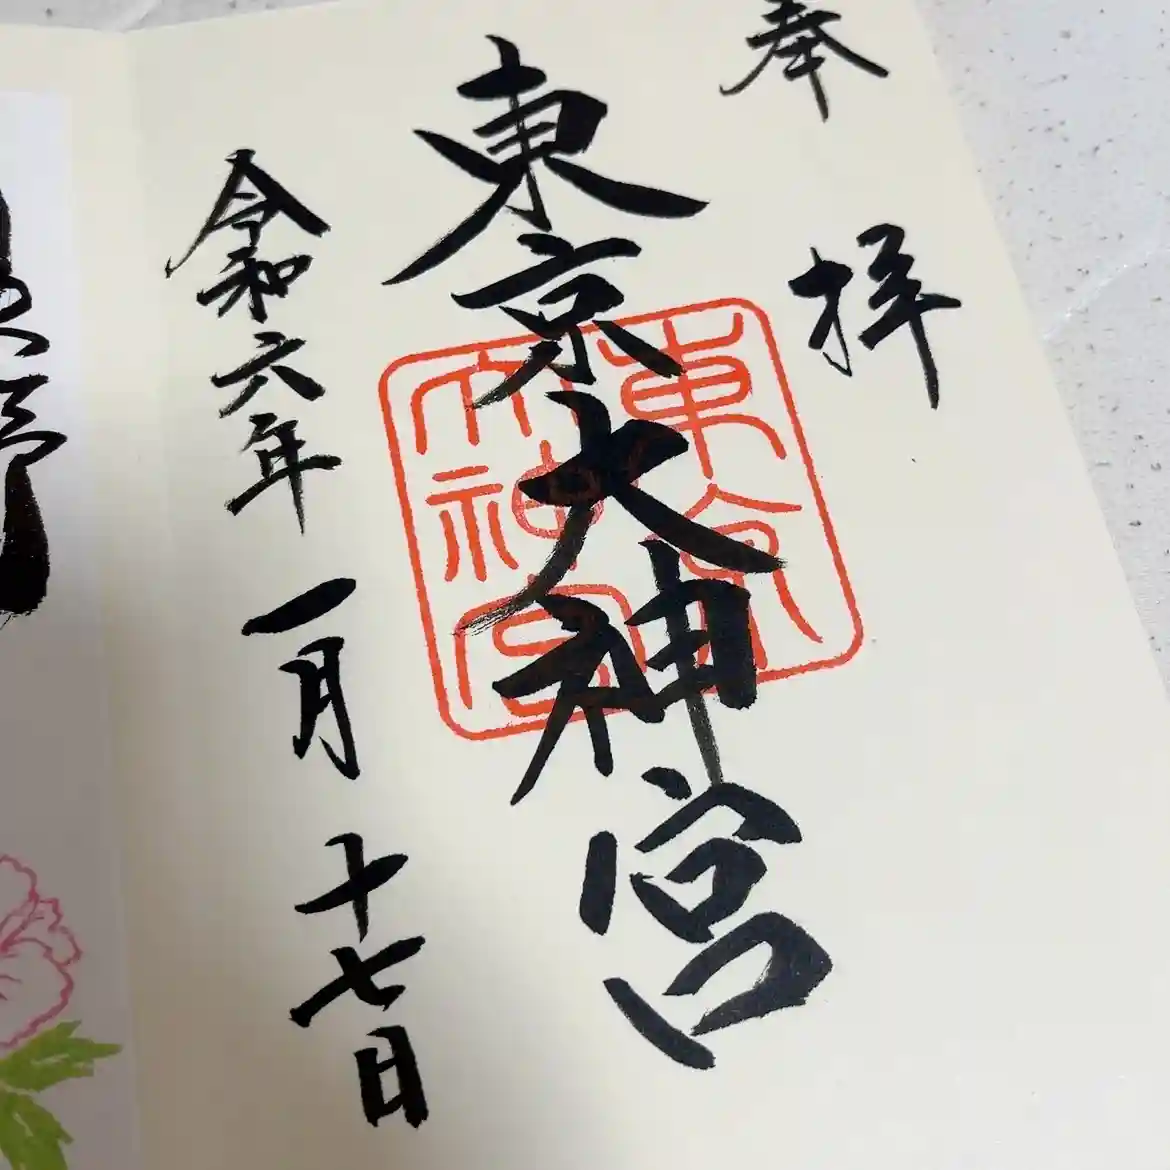 奉拝
東京大神宮
東京
大神宮
令和六年一月十七日